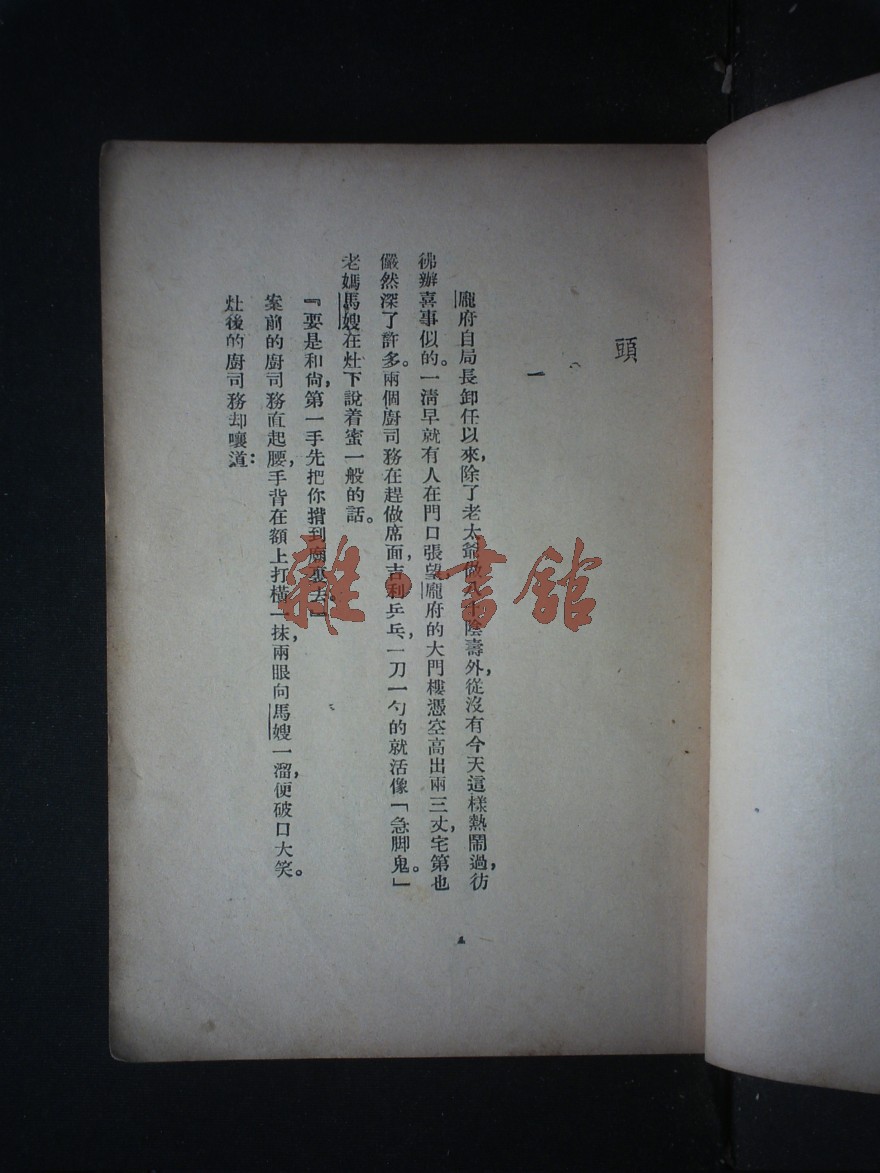 頭
一
龐府自局長卸任以來，除了老太爺做八十陰壽外，從沒有今天這樣熱鬧過，彷
彿辦喜事似的。一清早就有人在門口張望，龐府的大門樓憑空高出兩三丈，宅第也
儼然深了許多。兩個廚司務在趕做席面，吉利乒乓，一刀一勺的就活像「急脚鬼。」
老媽馬嫂在灶下說着蜜一般的話。
『要是和尙，第一手先把你揹到廟裏去。』
案前的廚司務直起腰，手背在額上打橫一抹，兩眼向馬嫂一溜，便破口大笑。
灶後的廚司務却嚷道：
雜·書館